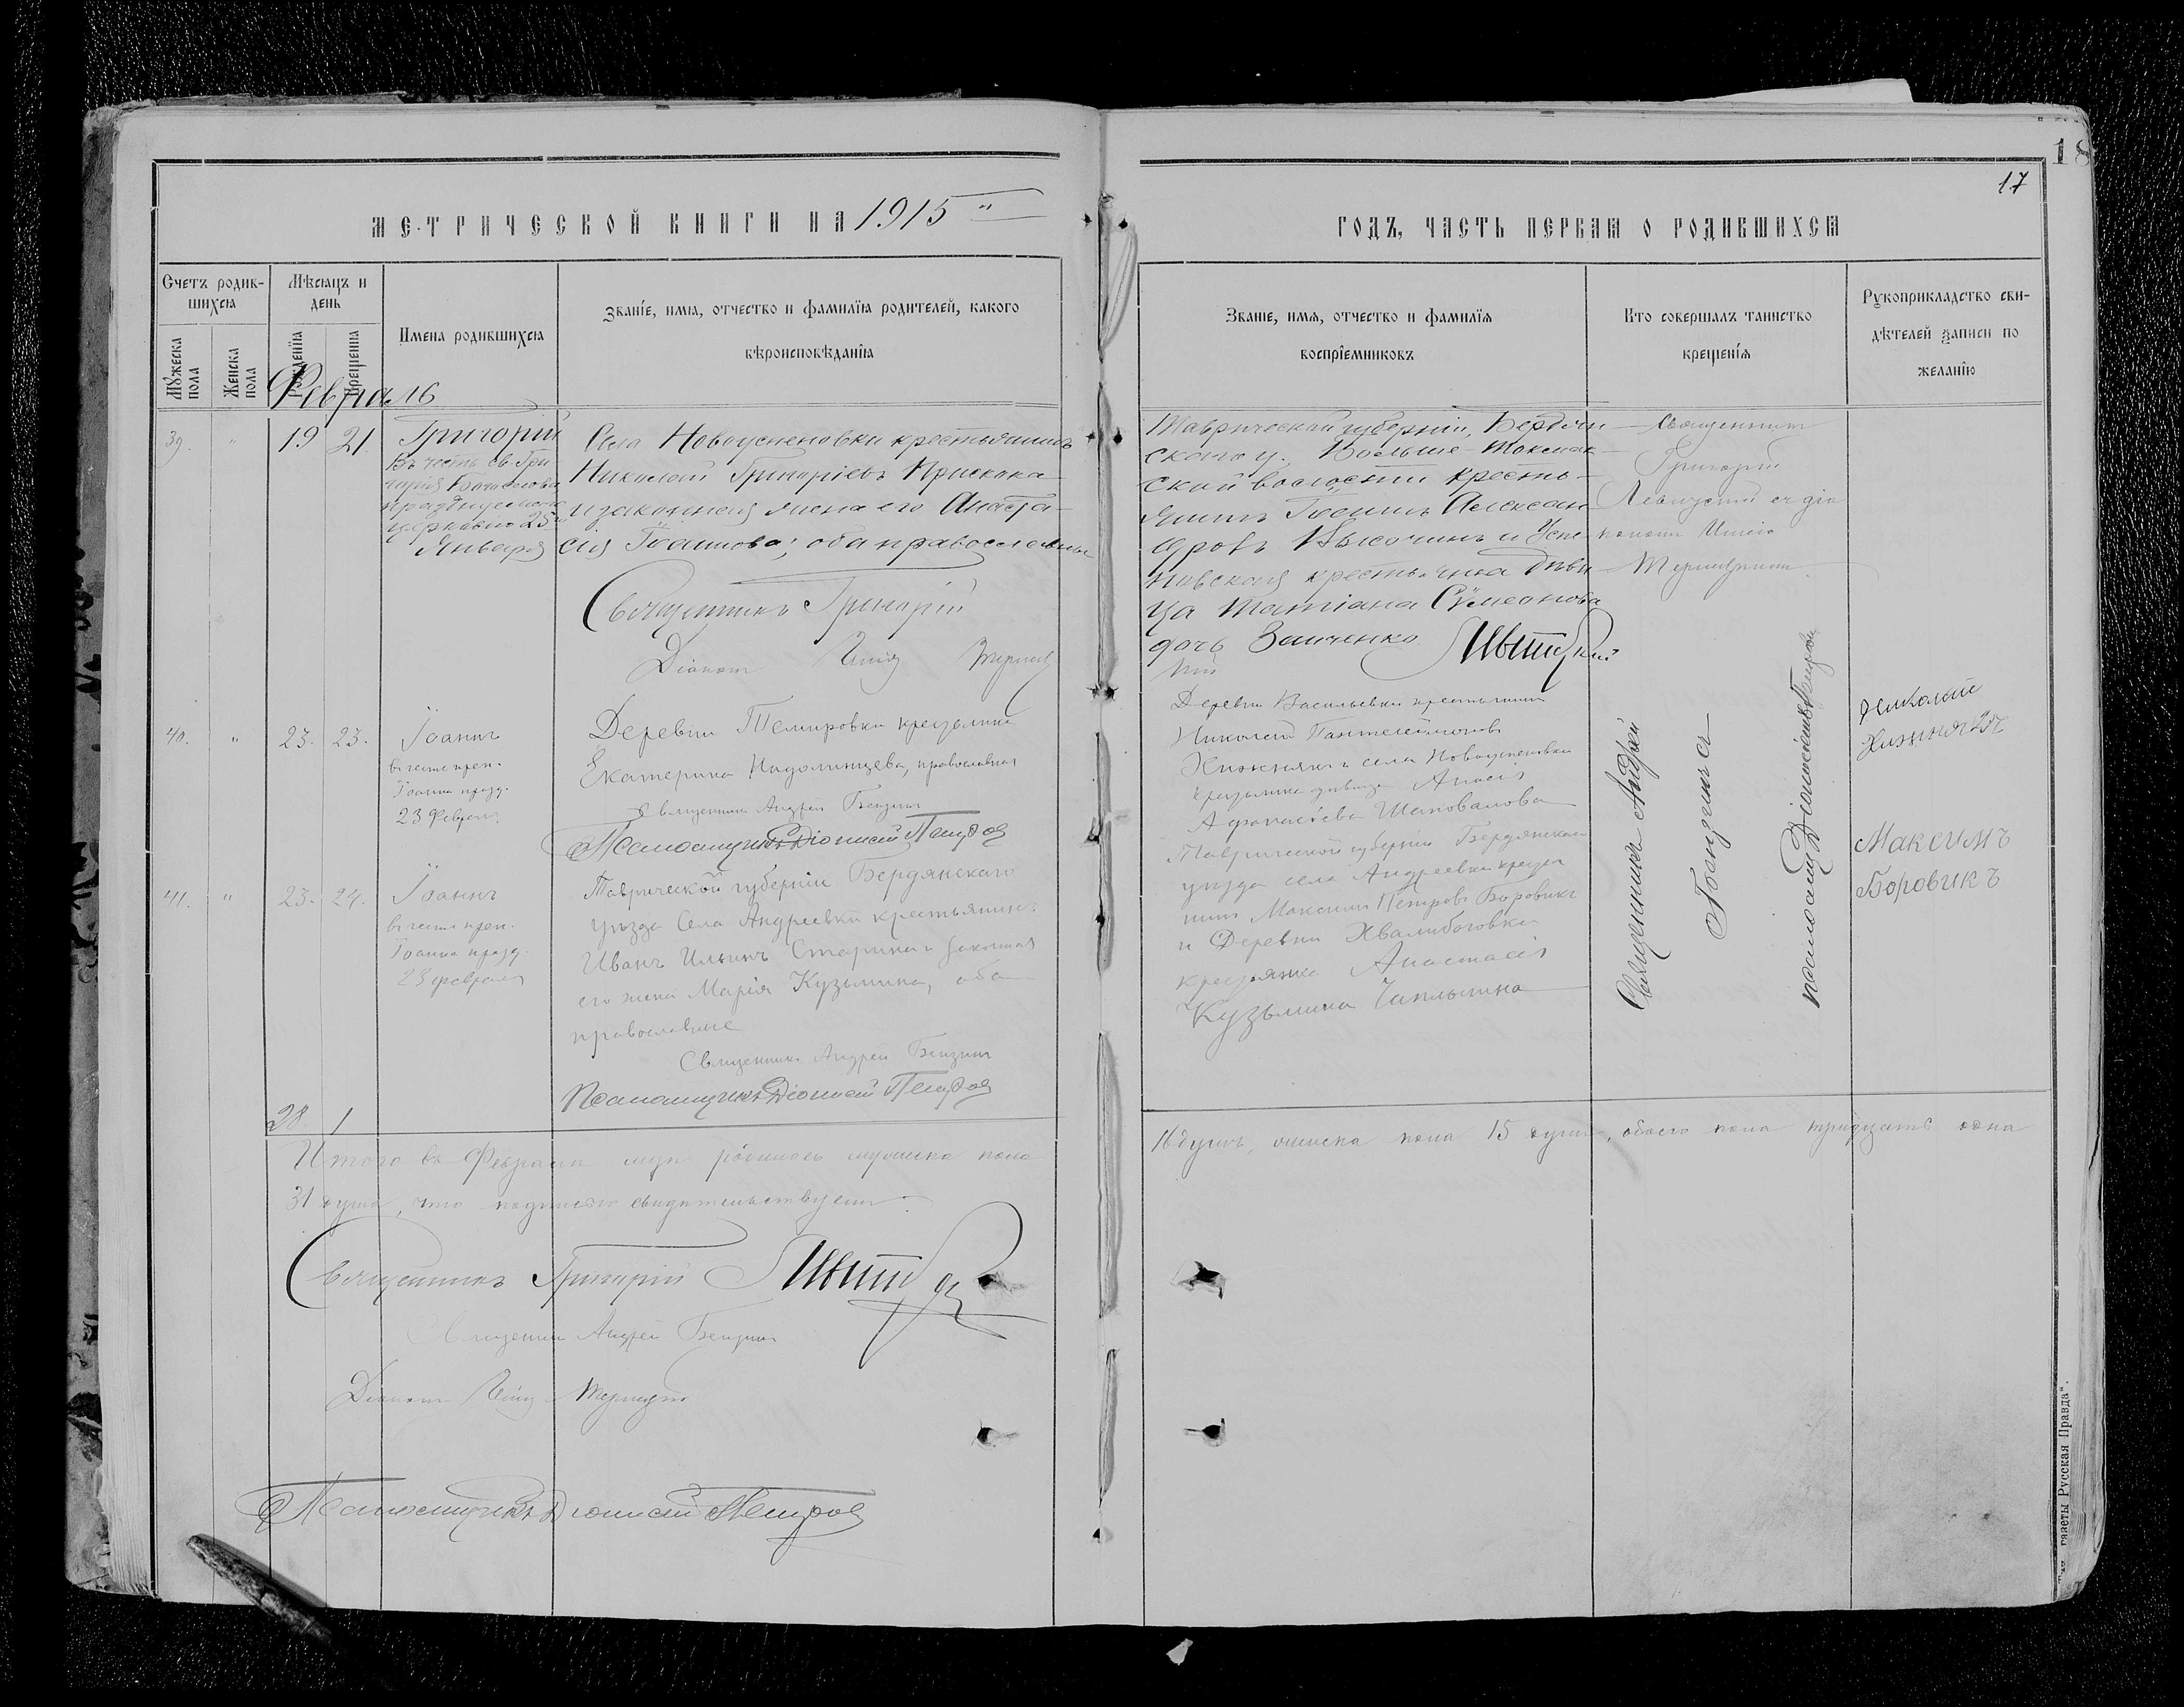 18
17
МЕТРИЧЕСКОЙ КНИГИ НА 1915
ГОДЪ, ЧАСТЬ ПЕРВАЯ О РОДИВШИХСЯ
Счетъ родив-
шихся
Мѣсяцъ и
день
Имена родившихся
Званіе, имя, отчество и фамилія родителей, какого
вѣроисповѣданія
Мужеска пола
Женска пола
Рожденія
Крещенія
Званіе, имя, отчество и фамилія
воспріемниковъ
Кто совершалъ таинство
крещенія
Рукоприкладство сви-
дѣтелей записи по
желанію
Февраль
39. " 19 21.
Григорій
Въ честь св. Гри
горія Богослова
празднуемаго
церковью 25го
Января
Села Новоуспеновки крестьянинъ
Николай Григоріевъ
и законная жена его Анаста-
сія Іоаннова; оба православные
Священникъ Григорій
Діаконъ
Таврической губерніи, Бердян
скаго у. Больше-Токмак-
ской волости кресть-
янинъ Іоаннъ Алексан
дровъ Высочинъ и Успе
новская крестьянка дѣви
ца Татіана Сѵмеонова
дочь Заиченко
Священникъ
Григорій
съ діа
кономъ
40. " 23. 23.
Іоаннъ
въ честь преп.
Іоанна празд.
23 Февраля.
Деревни Темировки крестьянка
Екатерина православная
Священникъ Андрей
Псаломщикъ Діонисій Петровъ
Деревни Васильевки крестьянинъ
Николай Пантелеймоновъ
Хижнякъ и села Новоуспеновки
крестьянка дѣвица
Афанасіева Шаповалова
Николай
Хижнякъ
41. " 23. 24.
Іоаннъ
въ честь преп.
Іоанна празд.
23 февраля
Таврической губерніи Бердянскаго
уѣзда Села Андреевки крестьянинъ
Иванъ Ильинъ и законная
его жена Марія Кузьмина, оба
православные
Священникъ Андрей
Псаломщикъ Діонисій Петровъ
Таврической губерніи Бердянскаго
уѣзда села Андреевки крестья
нинъ Максимъ Петровъ Боровикъ
и Деревни Хвалибоговки
крестьянка Анастасія
Кузьмина Чаплыгина
Священникъ Андрей
съ
псаломщ. Діонисіемъ Петровымъ
Максимъ
Боровикъ
28 1
Итого въ Февралѣ родилось мужска пола
16 душъ, женска пола 15 душъ, обоего пола тридцать одна
31 душа, что подписью свидѣтельствуемъ.
Священникъ Григорій
Священникъ Андрей
Діаконъ
Псаломщикъ Діонисій Петровъ
газеты Русская Правда".